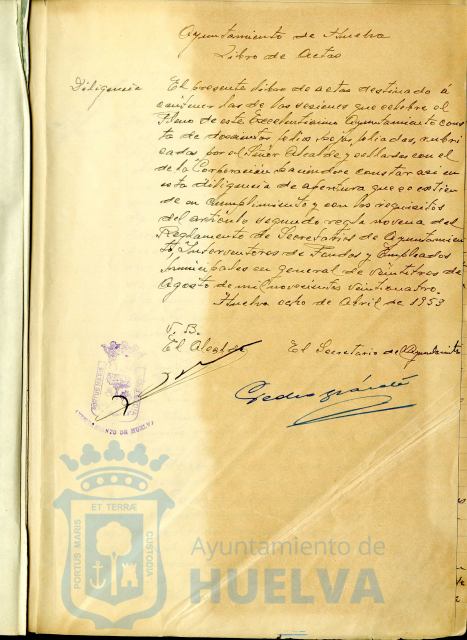 Ayuntamiento de Huelva
Libro de Actas
Diligencia
El presente libro de actas destinado á
contener las de las sesiones que celebre el
Pleno de este Excelentísimo Ayuntamiento cons
ta de doscientos folios, foliadas, rubri
cadas por el Señor Alcalde y selladas con el
de la Corporación haciendose constar asi en
esta diligencia de apertura que se extien
de en cumplimiento y con los requisitos
del artículo segundo regla novena del
Reglamento de Secretarios de Ayuntamien
to, Interventores de Fondos y Empleados
Municipales en general de veintitres de
Agosto de mil novecientos veinticuatro.
Huelva ocho de Abril de 1953
V. B.
El Alcalde
El Secretario del Ayuntamiento
Pedro
AYUNTAMIENTO DE HUELVA
ET TERRÆ
PORTUS MARIS
CUSTODIA
Ayuntamiento de
HUELVA